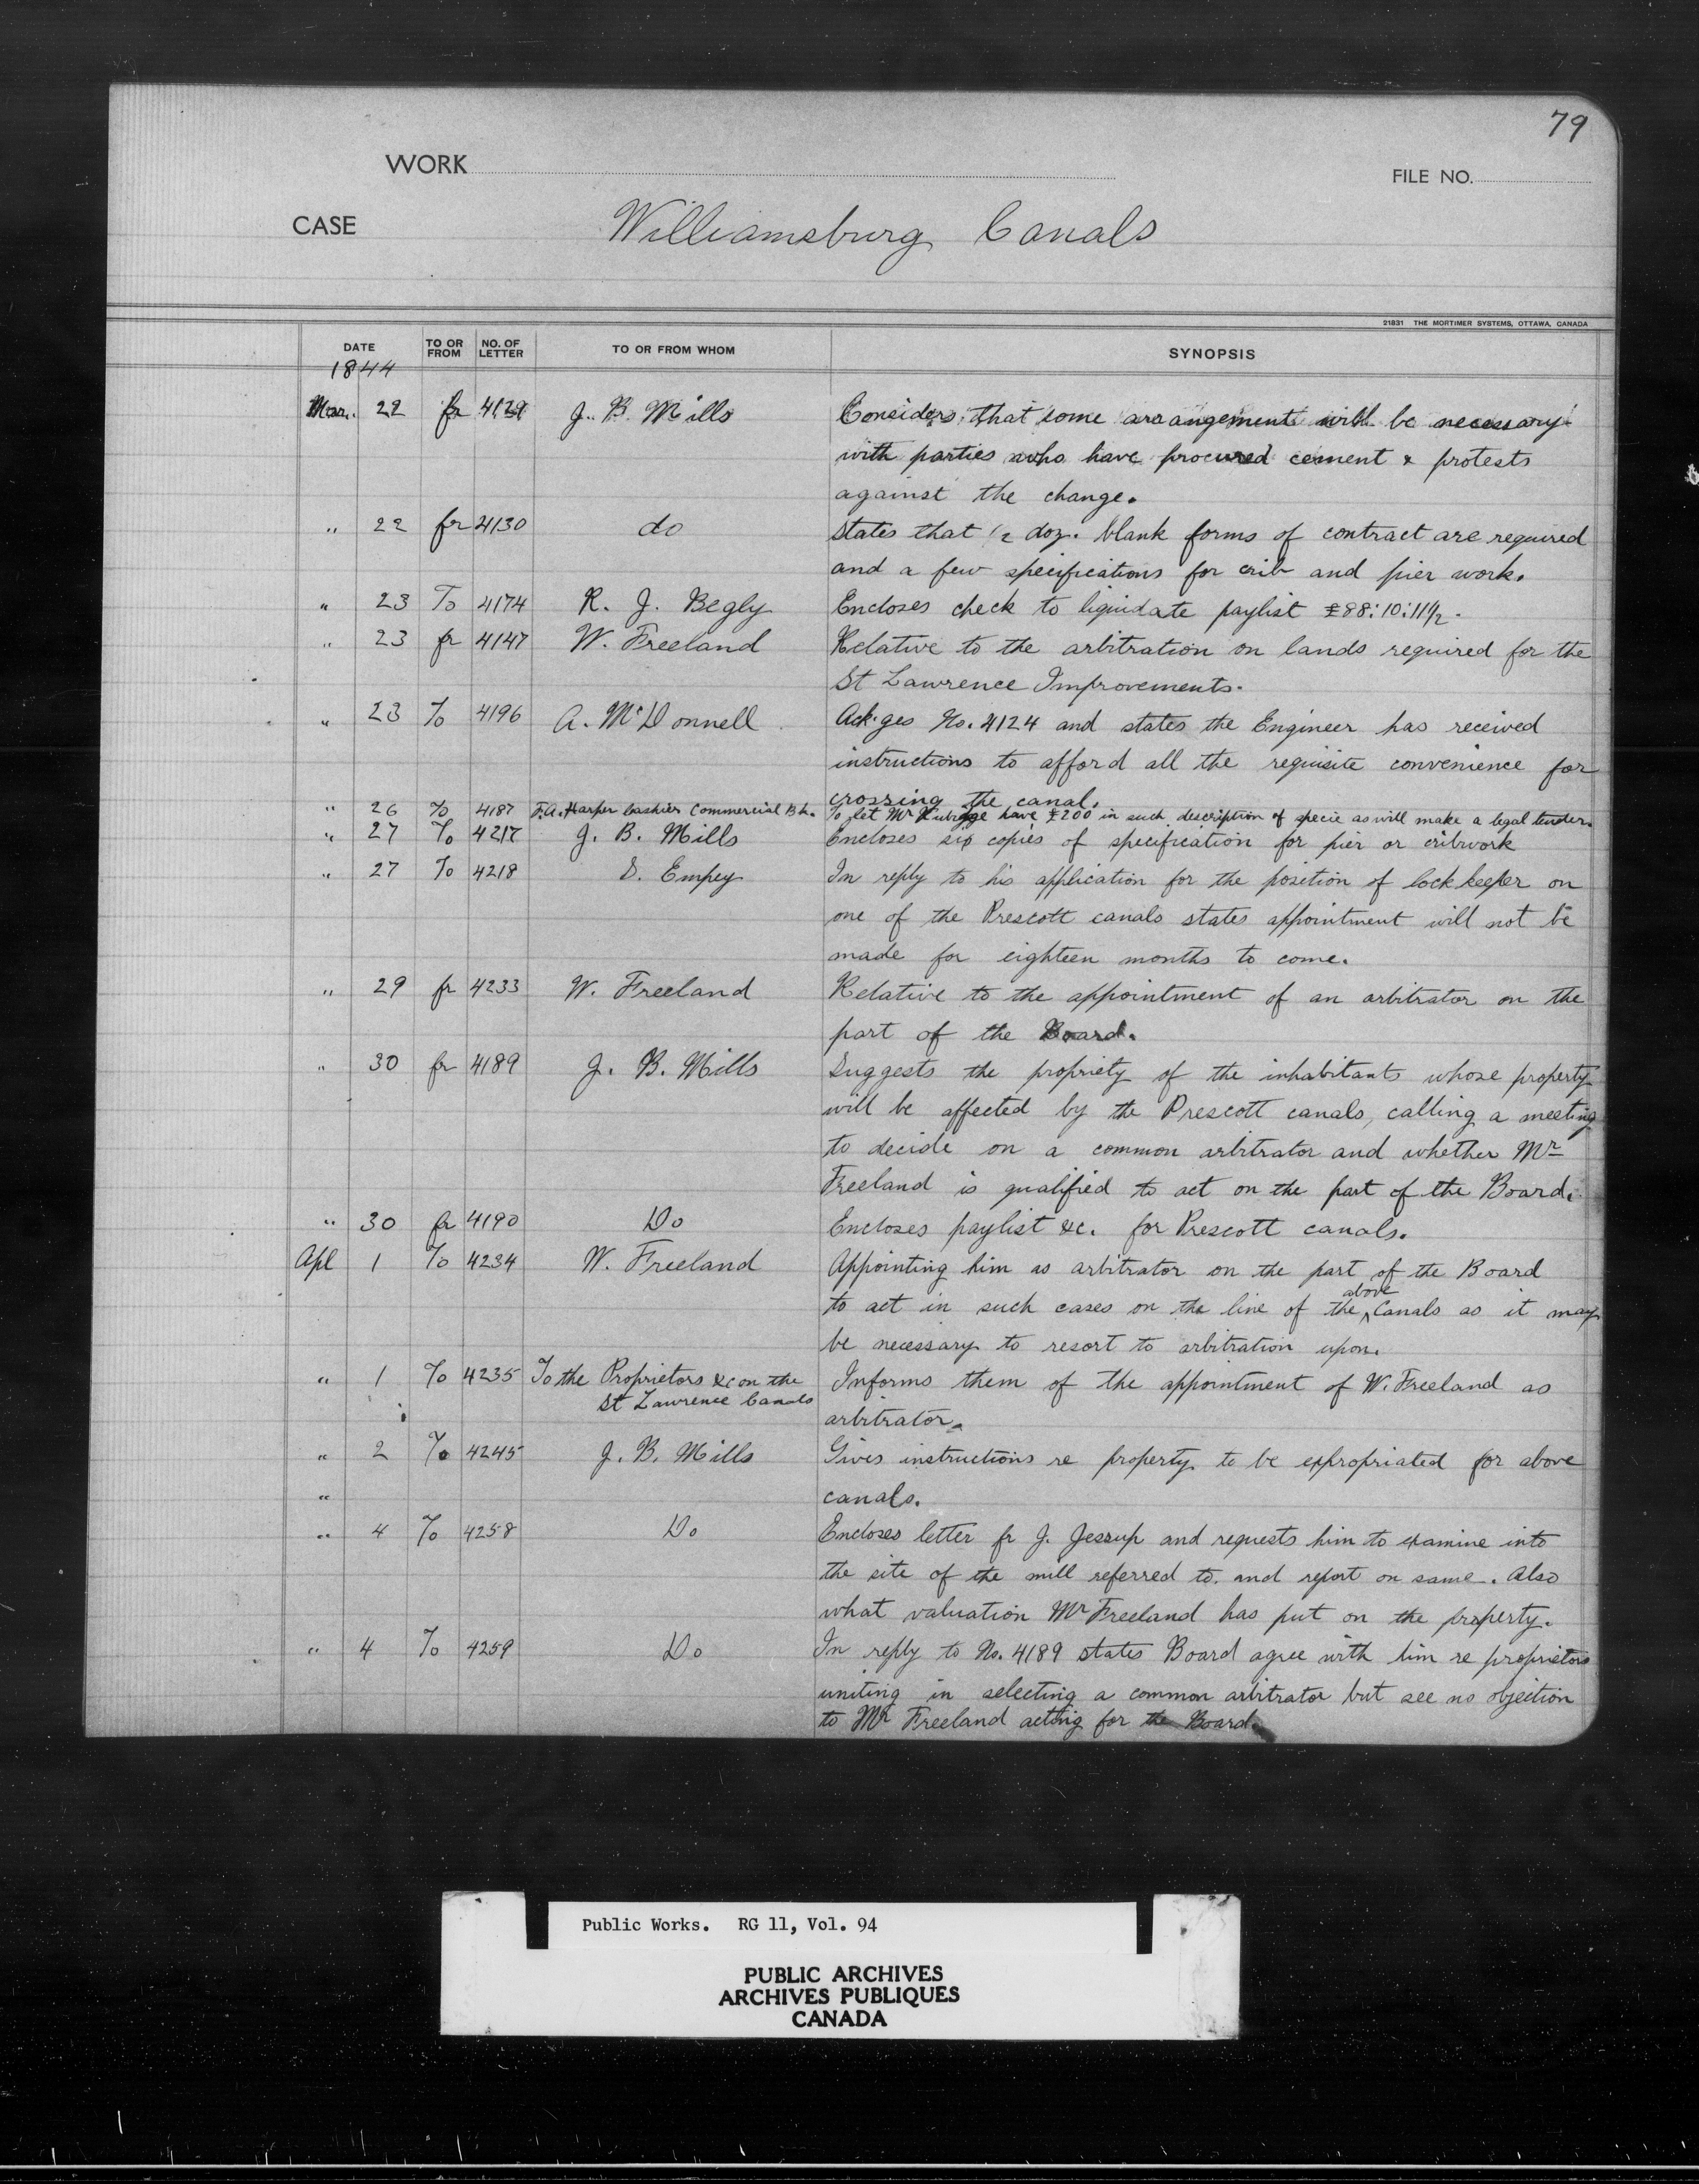 79
WORK
FILE NO.
CASE Williamsburg Canals
21831 THE MORTIMER SYSTEMS, OTTAWA, CANADA
DATE TO OR FROM NO. OF LETTER TO OR FROM WHOM SYNOPSIS
1844
Mar. 22 fr 4129 J. B. Mills Considers that some arrangement will be necessary
with parties who have procured cement & protests
against the change.
" 22 fr 4130 do States that 1/2 doz. blank forms of contract are required
and a few specifications for crib and pier work.
" 23 To 4174 R. J. Begly Encloses check to liquidate paylist £88:10:11½.
" 23 fr 4147 W. Freeland Relative to the arbitration on lands required for the
St Lawrence Improvements.
" 23 To 4196 A. McDonnell Ack'ges No. 4124 and states the Engineer has received
instructions to afford all the requisite convenience for
crossing the canal.
" 26 To 4187 F.A. Harper Cashier Commercial Bk. To let Mr Rubidge have £200 in such description of specie as will make a legal tender.
" 27 To 4217 J. B. Mills Encloses six copies of specification for pier or cribwork
" 27 To 4218 S. Empey In reply to his application for the position of lock keeper on
one of the Prescott canals states appointment will not be
made for eighteen months to come.
" 29 fr 4233 W. Freeland Relative to the appointment of an arbitrator on the
part of the Board.
" 30 fr 4189 J. B. Mills Suggests the propriety of the inhabitants whose property
will be affected by the Prescott canals, calling a meeting
to decide on a common arbitrator and whether Mr
Freeland is qualified to act on the part of the Board.
" 30 fr 4190 Do Encloses paylist &c. for Prescott canals.
Apl 1 To 4234 W. Freeland Appointing him as arbitrator on the part of the Board
to act in such cases on the line of the above Canals as it may
be necessary to resort to arbitration upon.
" 1 To 4235 To the Proprietors &c on the Informs them of the appointment of W. Freeland as
St Lawrence Canals arbitrator.
" 2 To 4245 J. B. Mills Gives instructions re property to be expropriated for above
" canals.
" 4 To 4258 Do Encloses letter fr J. Jessup and requests him to examine into
the site of the mill referred to and report on same. Also
what valuation Mr Freeland has put on the property.
" 4 To 4259 Do In reply to No. 4189 states Board agree with him re proprietors
uniting in selecting a common arbitrator but see no objection
to Mr Freeland acting for the Board.
Public Works. RG 11, Vol. 94
PUBLIC ARCHIVES
ARCHIVES PUBLIQUES
CANADA